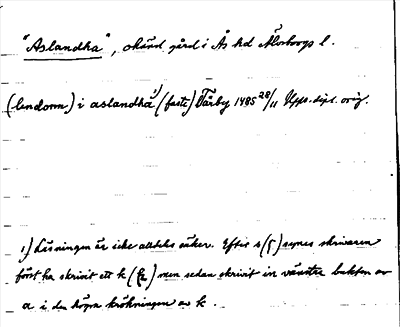 "Aslandha", okänd gård i Ås hd Älvsborgs l.
(lendorm) i aslandha 1) (faste) Tärby 1485 28/11 Upps. dipl. orig.
1) Läsningen är icke alldeles säker. Efter s (ʃ) synes skrivaren
först ha skrivit ett k (k) men sedan skrivit in vänstra bukten av
a i den högra krökningen av k.